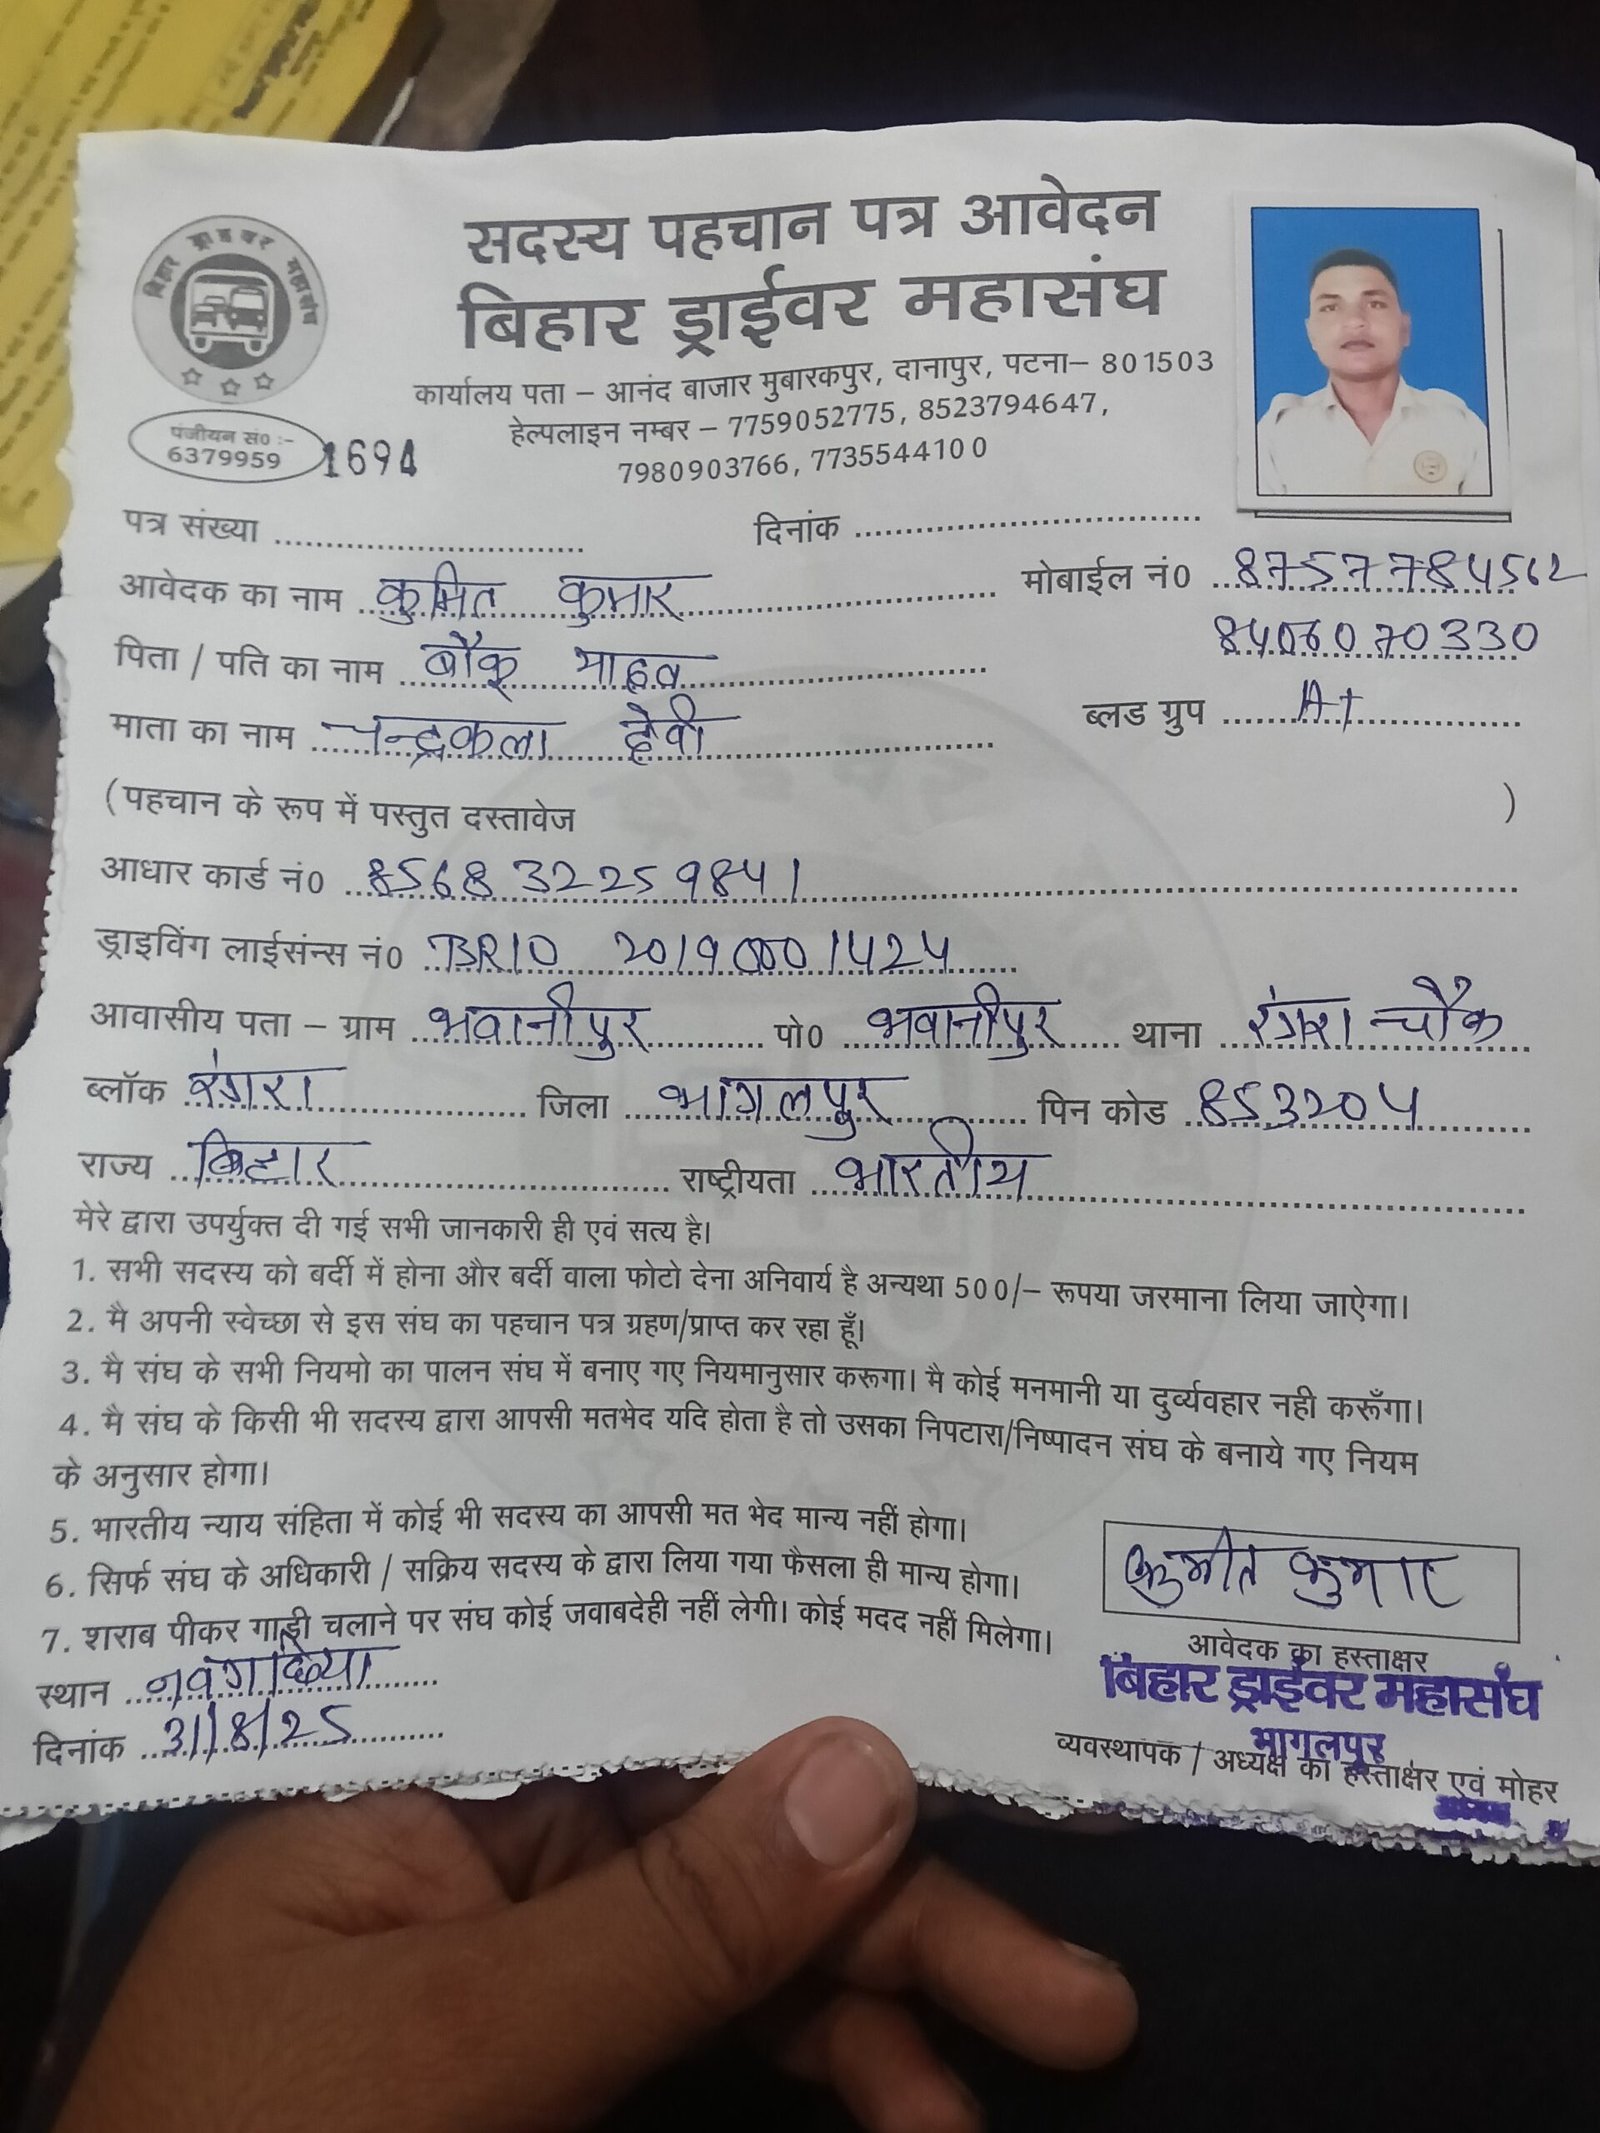 सदस्य पहचान पत्र आवेदन
बिहार ड्राईवर महासंघ
बिहार ड्राइवर महासंघ
कार्यालय पता – आनंद बाजार मुबारकपुर, दानापुर, पटना– 801503
हेल्पलाइन नम्बर – 7759052775, 8523794647,
7980903766, 7735544100
पंजीयन सं0 :-
6379959
1694
पत्र संख्या .............................. दिनांक ..............................
आवेदक का नाम कुमित कुमार मोबाईल नं0 8757784562
8406070330
पिता / पति का नाम बौकू यादव
माता का नाम चन्द्रकला देवी ब्लड ग्रुप A+
(पहचान के रूप में पस्तुत दस्तावेज )
आधार कार्ड नं0 8568 3225 9841
ड्राइविंग लाईसंन्स नं0 BR10 20190001424
आवासीय पता – ग्राम भवानीपुर पो0 भवानीपुर थाना रंगरा चौक
ब्लॉक रंगरा जिला भागलपुर पिन कोड 853204
राज्य बिहार राष्ट्रीयता भारतीय
मेरे द्वारा उपर्युक्त दी गई सभी जानकारी ही एवं सत्य है।
1. सभी सदस्य को बर्दी में होना और बर्दी वाला फोटो देना अनिवार्य है अन्यथा 500/– रूपया जरमाना लिया जाऐगा।
2. मै अपनी स्वेच्छा से इस संघ का पहचान पत्र ग्रहण/प्राप्त कर रहा हूँ।
3. मै संघ के सभी नियमो का पालन संघ में बनाए गए नियमानुसार करूगा। मै कोई मनमानी या दुर्व्यवहार नही करूँगा।
4. मै संघ के किसी भी सदस्य द्वारा आपसी मतभेद यदि होता है तो उसका निपटारा/निष्पादन संघ के बनाये गए नियम
के अनुसार होगा।
5. भारतीय न्याय संहिता में कोई भी सदस्य का आपसी मत भेद मान्य नहीं होगा।
6. सिर्फ संघ के अधिकारी / सक्रिय सदस्य के द्वारा लिया गया फैसला ही मान्य होगा।
7. शराब पीकर गाड़ी चलाने पर संघ कोई जवाबदेही नहीं लेगी। कोई मदद नहीं मिलेगा।
कुमीत कुमार
आवेदक का हस्ताक्षर
स्थान नवगछिया
दिनांक 31/8/25
बिहार ड्राईवर महासंघ
भागलपुर
व्यवस्थापक / अध्यक्ष का हस्ताक्षर एवं मोहर